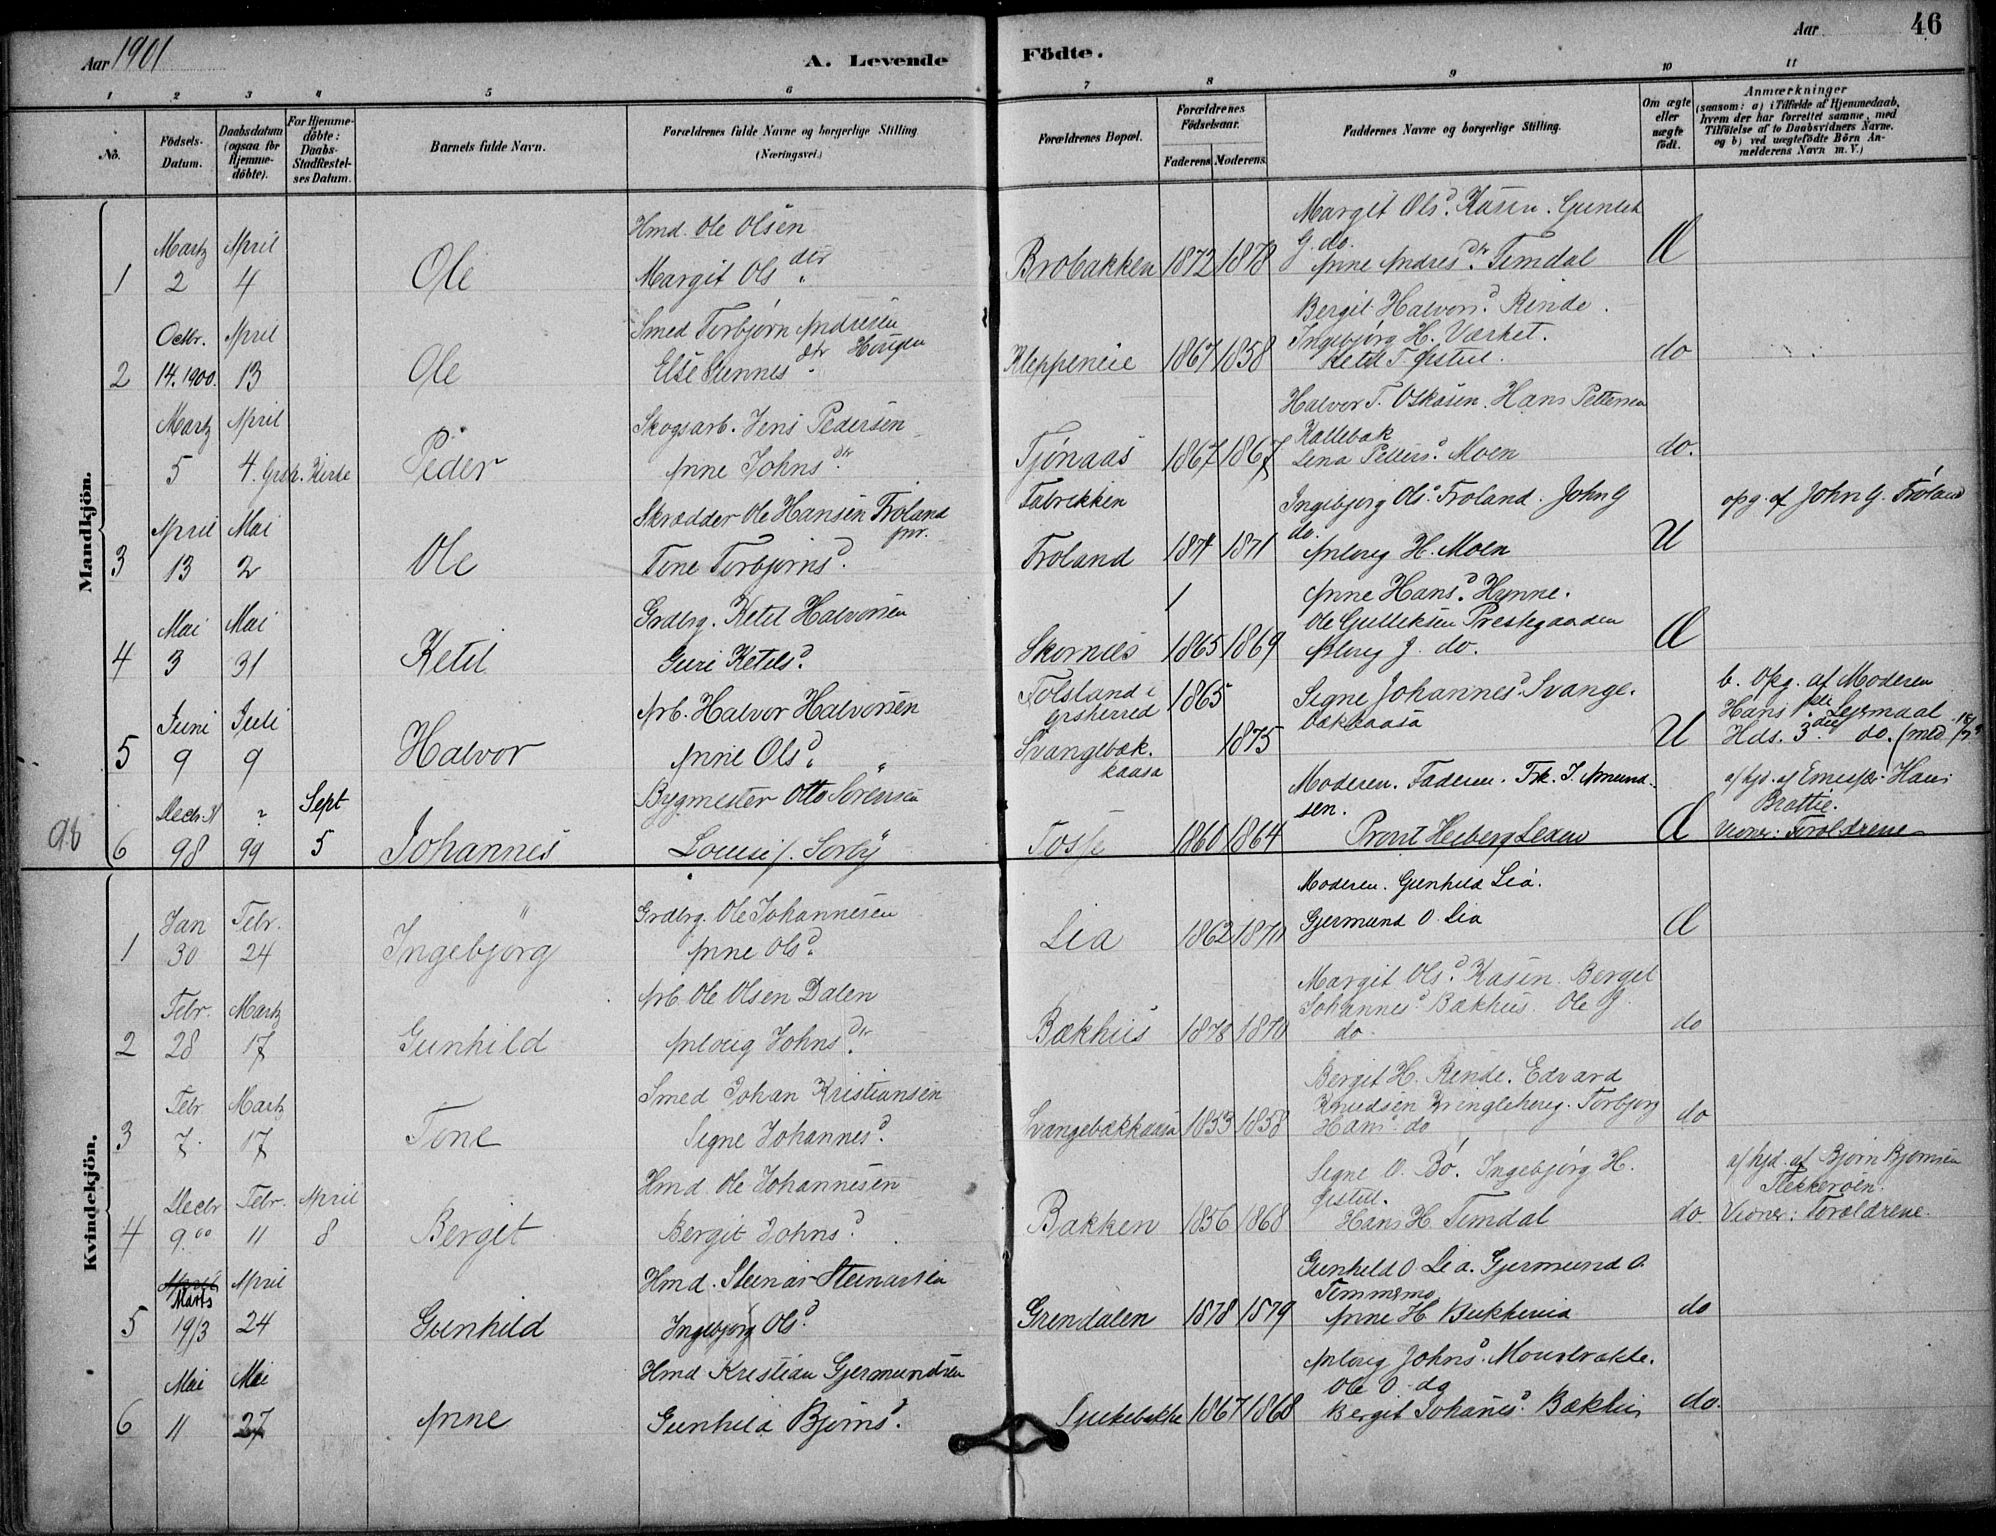 Aar 1901
A. Levende Födte.
Aar 46
1 2 3 4 5 6 7 8 9 10 11
No.
Födsels-Datum.
Daabsdatum (ogsaa for Hjemmedöbte).
For Hjemmedöbte: Daabs-Stadfæstelses Datum.
Barnets fulde Navn.
Forældrenes fulde Navne og borgerlige Stilling. (Næringsvei.)
Forældrenes Bopæl.
Forældrenes Födselsaar.
Faderens Moderens.
Faddernes Navne og borgerlige Stilling.
Om ægte eller uægte födt.
Anmærkninger (saasom: a) i Tilfælde af Hjemmedaab, hvem der har forrettet samme, med Tilföielse af to Daabsvidners Navne, og b) ved uægtefödte Börn Anmelderens Navn m. V.)
Mandkjön.
1
Martz 2
April 4
Ole
Hmd. Ole Olsen
Margit Olsdtr
Brobakken 1872 1878
Margit Olsd. Kåsen. Gunild
G. do.
Anne Andresdtr. Timdal
Æ
2
Octbr. 14. 1900.
April 13
Ole
Smed Torbjørn Andresen
Else Gunnesdtr Haugen
Kleppeneie 1867 1858
Bergit Halvorsd. Rinde.
Ingebjørg H. Værket.
Ketil T. Østul.
do
3
Martz 5
April 4. Kirke
Peder
Skogsarb. Jens Pedersen
Anne Johnsdtr.
Tjønaas 1867 1867
Halvor T. Hans Pettersen
Kallebak
Lena Petersd. Moen
do.
3
April 13
Mai 2
Ole
Skrædder Ole Hansen Froland
Tone Torbjørnsd.
Fabrikken
Froland 1871
Ingebjørg Olsd. Froland. John G
do.
Anlaug H. Moen
U
opg. af John G. Froland
4
Mai 3
Mai 31
Ketil
Grdbrg. Ketil Halvorsen
Guri Ketilsd.
Skornes 1865 1869
Anne Hansd. Hynne.
Ole Gulliksen Prestgaarden
Aslaug J. do.
Æ
5
Juni 9
Juli 9
Halvor
Arb. Halvor Halvorsen
Anne Olsd.
Folsland i
Grsherred 1865
Svangebæk-
kaasa 1875
Signe Johannesd. Svange-
bækkaasa
U
b. Opg. af Moderen
Hans 1ste Leiermaal
Hds. 3die do. (med
98
6
Decbr. 98
? 99
Sept 5
Johannes
Bygmester Otto Sørensen
Louise f. Sørby
1860 1864
Moderen. Faderen. Frk. I. Amund-
sen.
Provst Heiberg
Æ
af hjd. af Hans
Brattie.
Vidner: Forældrene
Kvindekjön.
1
Jan 30
Febr. 24
Ingebjørg
Grdbrg. Ole Johannesen
Anne Olsd.
Lia 1862 1870
Moderen. Gunhild Lia.
Gjermund O. Lia
Æ
2
Febr. 28
Martz 17
Gunhild
Arb. Ole Olsen Dalen
Anlaug Johnsdtr.
Bækhus 1878 1870
Margit Olsd. Kåsen. Bergit
Johannesd. Bækhus. Ole G.
do
do
3
Febr 7.
Martz 17
Tone
Smed Johan Kristiansen
Signe Johannesd.
Svangebækkaasa 1853 1858
Bergit H. Rinde. Edvard
Knudsen Kringlehaug. Torbjørg
Hansd. do
do
4
Decbr 9.00
Febr. 11
April 8
Bergit
Hmd. Ole Johannesen
Bergit Johnsd.
Bakken 1856 1868
Signe O. Bø. Ingebjørg H.
Østul.
Hans H. Timdal
do.
af hjd. af Bjørn Bjørnsen
Flekkerøen.
Vidner: Forældrene.
5
April
Marts 19/3
April 24
Gunhild
Hmd. Steinar Steinarsen
Ingebjørg Olsd.
Grendalen 1878 1879
Gunhild O Lia. Gjermund O.
Tommsmo
Anne H. Bukkevia
do
6
Mai 11
Mai 27
Anne
Hmd Kristian Gjermundsen
Gunhild Bjørnsd.
1867 1868
Anlaug Johnsd.
Ole O. do
Bergit Johanesd. Bækhus
do.